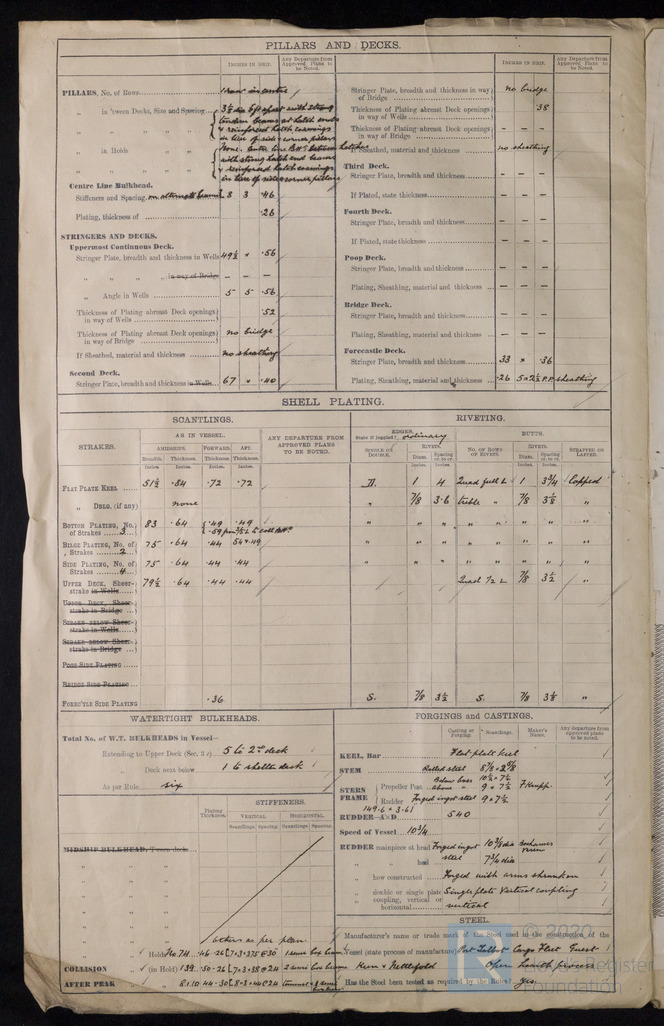 PILLARS AND DECKS.
INCHES IN SHIP.
Any Departure from Approved Plans to be Noted.
PILLARS, No. of Rows 1 row in centre
in 'tween Decks, Size and Spacing
tendem beams at hatch ends
& reinforced hatch coamings
in lieu of side & corner pillars
in Holds None. Centre line BHd between hatches
with strong hatch end beams
& reinforced hatch coamings
in lieu of side & corner pillars
Centre Line Bulkhead.
Stiffeners and Spacing, on alternate beams 8 3 .46
Plating, thickness of .26
STRINGERS AND DECKS.
Uppermost Continuous Deck.
Stringer Plate, breadth and thickness in Wells 49½ × .56
„ „ „ in way of Bridge – – –
„ Angle in Wells 5 5 .56
Thickness of Plating abreast Deck openings in way of Wells .52
Thickness of Plating abreast Deck openings in way of Bridge no bridge
If Sheathed, material and thickness no sheathing
Second Deck.
Stringer Plate, breadth and thickness in Wells 67 × .40
INCHES IN SHIP.
Any Departure from Approved Plans to be Noted.
Stringer Plate, breadth and thickness in way of Bridge no bridge
Thickness of Plating abreast Deck openings in way of Wells .38
Thickness of Plating abreast Deck openings in way of Bridge – –
If Sheathed, material and thickness no sheathing
Third Deck.
Stringer Plate, breadth and thickness – – –
If Plated, state thickness – – –
Fourth Deck.
Stringer Plate, breadth and thickness – – –
If Plated, state thickness – – –
Poop Deck.
Stringer Plate, breadth and thickness – – –
Plating, Sheathing, material and thickness – – –
Bridge Deck.
Stringer Plate, breadth and thickness – – –
Plating, Sheathing, material and thickness – – –
Forecastle Deck.
Stringer Plate, breadth and thickness 33 × .36
Plating, Sheathing, material and thickness .26 5 × 2½ P.P. sheathing
SHELL PLATING.
SCANTLINGS.
RIVETING.
STRAKES.
AS IN VESSEL.
ANY DEPARTURE FROM APPROVED PLANS TO BE NOTED.
AMIDSHIPS. FORWARD. AFT.
Breadth. Thickness. Thickness. Thickness.
Inches. Inches. Inches. Inches.
EDGES.
State if joggled? ordinary
BUTTS.
SINGLE OR DOUBLE.
RIVETS.
Diam. Spacing cr. to cr.
NO. OF ROWS OF RIVETS.
RIVETS.
Diam. Spacing cr. to cr.
STRAPPED OR LAPPED.
FLAT PLATE KEEL 51½ .84 .72 .72 D. 1 4 Quad full L 1 3¾ Lapped
„ DBLG. (if any) none „ 7/8 3.6 treble „ 7/8 3⅛ „
BOTTOM PLATING, No. of Strakes 3 83 .64 .49 .49 „ „ „ „ „ „ „ „
BILGE PLATING, No. of Strakes 2 75 .64 .44 „ „ „ „ „ „ „ „
SIDE PLATING, No. of Strakes 4 75 .64 .44 .44 „ „ „ „ „ „ „ „
UPPER DECK, Sheerstrake in Wells 79½ .64 .44 .44 Quad ½ L 7/8 3½ „
UPPER DECK, Sheerstrake in Bridge
STRAKE BELOW Sheerstrake in Wells
STRAKE BELOW Sheerstrake in Bridge
POOP SIDE PLATING
BRIDGE SIDE PLATING
FORECTLE SIDE PLATING .36 S. 7/8 3½ S. 7/8 3⅛ „
WATERTIGHT BULKHEADS.
Total No. of W.T. BULKHEADS in Vessel—
Extending to Upper Deck (Sec. 3 c) 5 to 2nd deck
„ Deck next below 1 to shelter deck
As per Rule six
STIFFENERS.
Plating Thickness.
VERTICAL. HORIZONTAL.
Scantlings. Spacing. Scantlings. Spacing.
MIDSHIP BULKHEAD, 'Tween deck
others as per plan
COLLISION „ (in Hold)
AFTER PEAK
FORGINGS and CASTINGS.
Casting or Forging. Scantlings. Maker's Name. Any departure from approved plans to be noted.
KEEL, Bar Flat plate keel
STEM Rolled steel 8⅞ × 2⅝
STERN FRAME
Propeller Post Below boss 10½ × 7½
above „ 9 × 7½ F. Krupp.
Rudder „ Forged ingot steel 9 × 7½
149.6 × 3.61
RUDDER—A×D 540
Speed of Vessel 10¾
RUDDER mainpiece at head Forged ingot 10⅜ dia
„ „ heel steel 7¾ dia
„ how constructed Forged with arms shrunk on
„ double or single plate Single plate Vertical coupling
coupling, vertical or horizontal vertical
STEEL.
Manufacturer's name or trade mark of the Steel used in the construction of the
Vessel (state process of manufacture) Port Talbot Cargo Fleet Guest
Keen & Nettlefold Open hearth process
Has the Steel been tested as required by the Rules? yes
© 2020
Lloyd's Register
Foundation